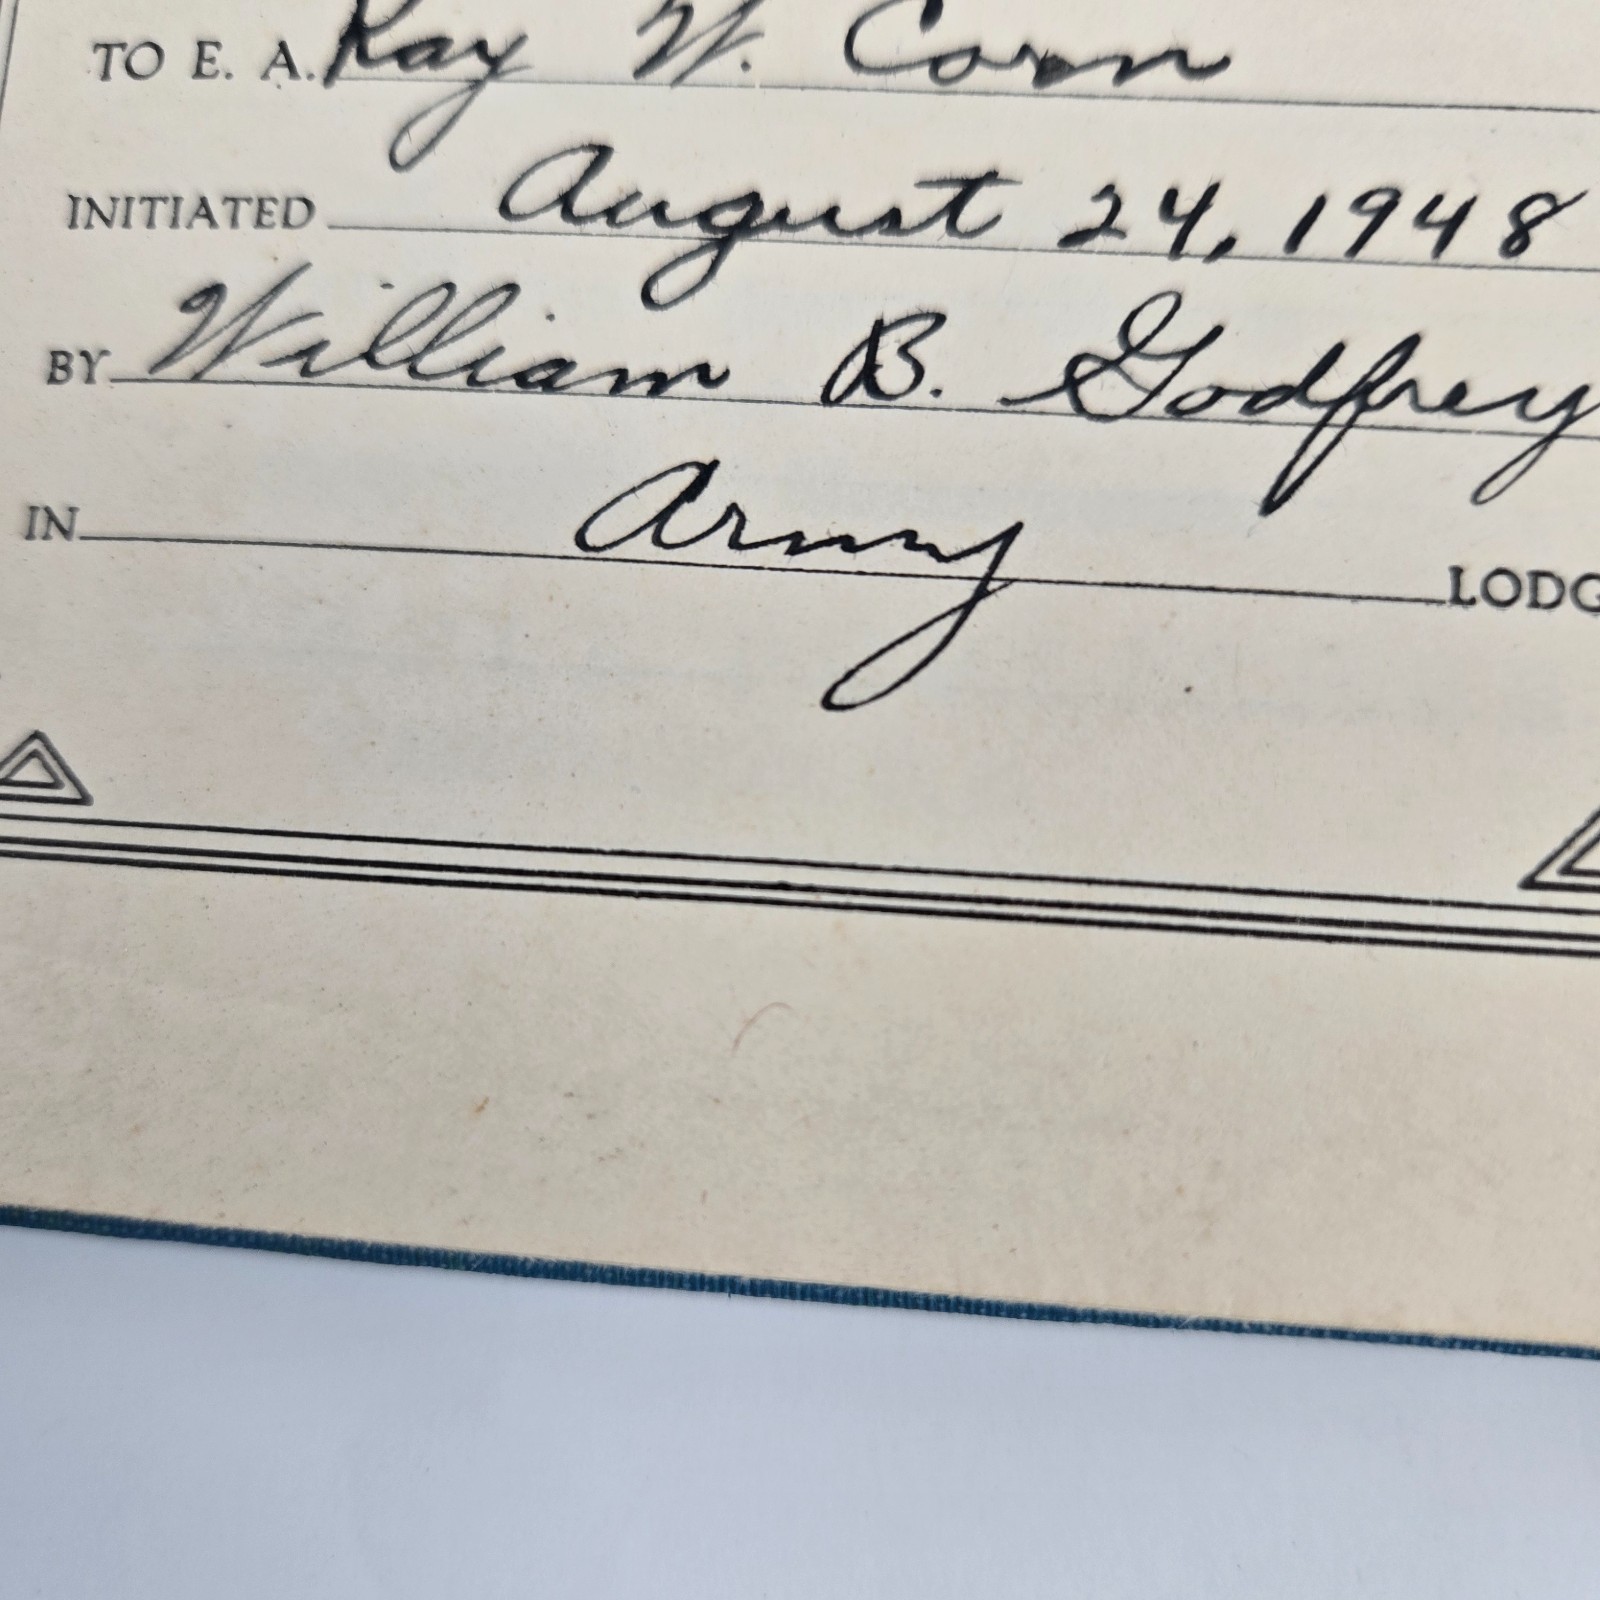 TO E. A. Ray W. Corn
INITIATED August 24, 1948
BY William B. Godfrey
IN Army LODG